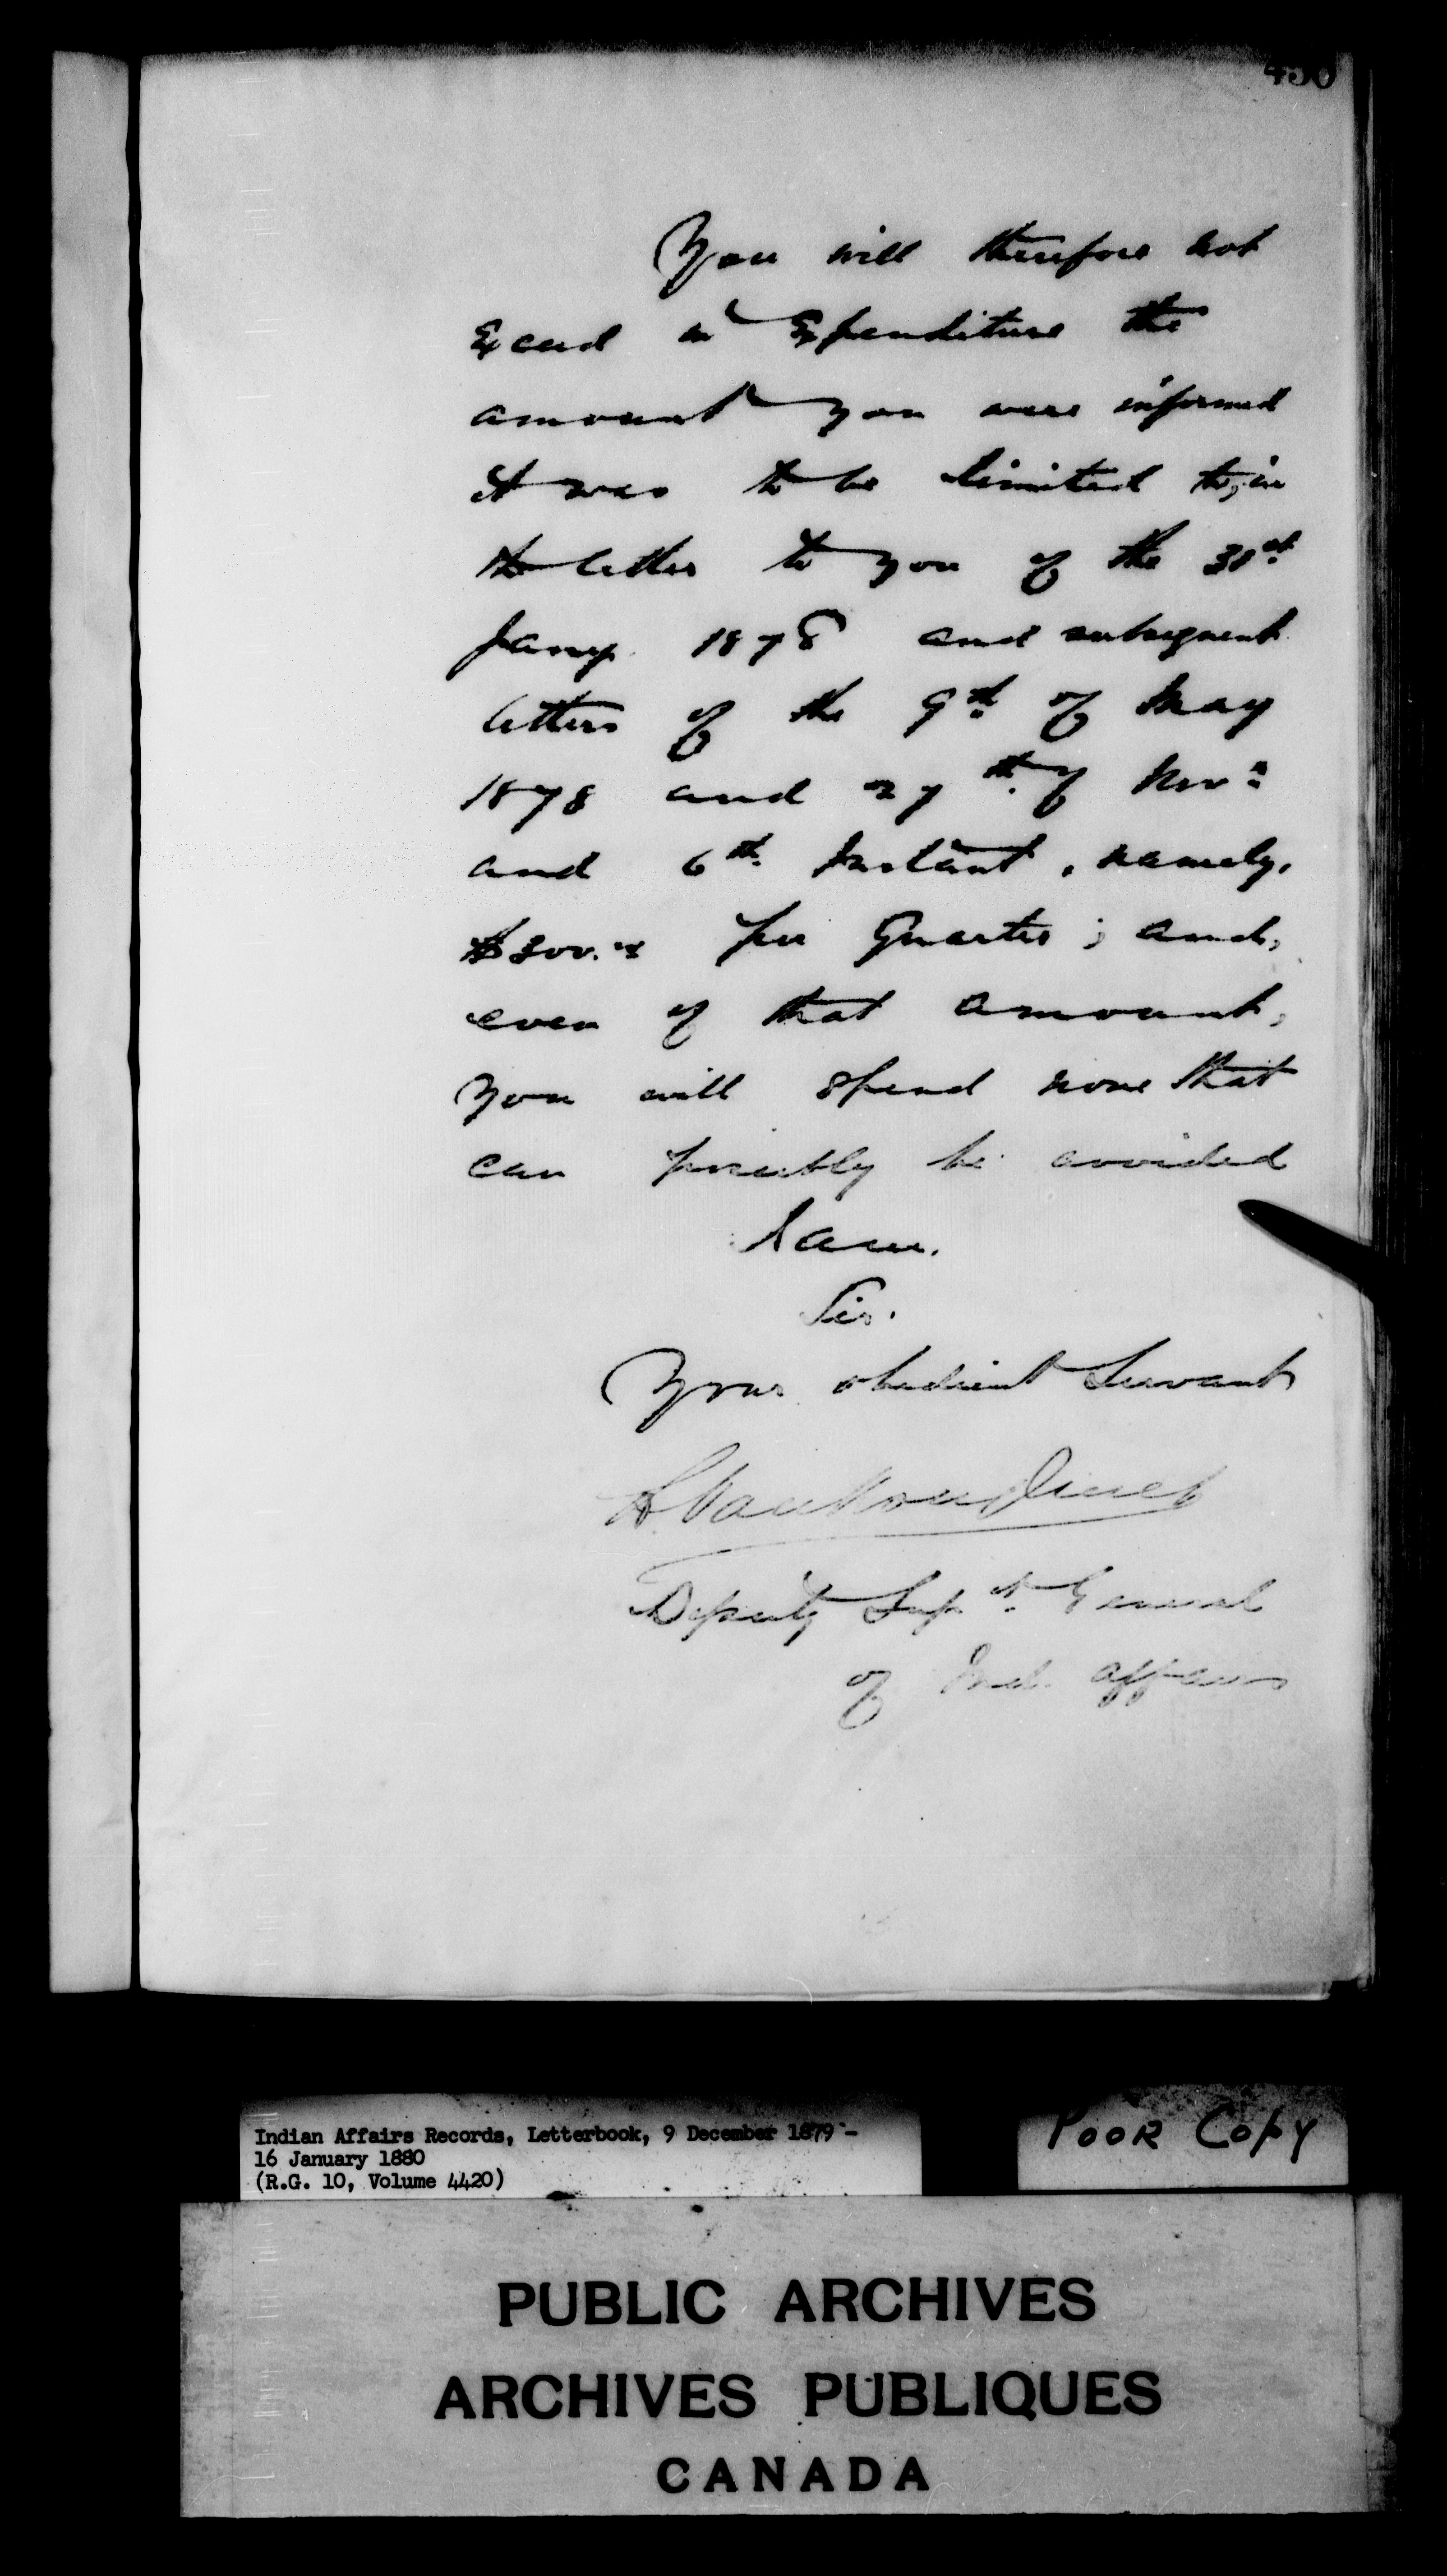 430
You will therefore not
Exceed in Expenditure the
amount you were informed
it was to be limited to, in
the letter to you of the 31st
Jany. 1878 and subsequent
letters of the 9th of May
1878 and 27th of Nov.
and 6th Instant, namely,
$300.00 per Quarter; and,
even of that amount,
you will spend none that
can possibly be avoided
I am.
Sir.
Your obedient Servant
L. VanKoughnet
Deputy Supt. General
of Ind. Affairs
Indian Affairs Records, Letterbook, 9 December 1879 -
16 January 1880
(R.G. 10, Volume 4420)
POOR COPY
PUBLIC ARCHIVES
ARCHIVES PUBLIQUES
CANADA